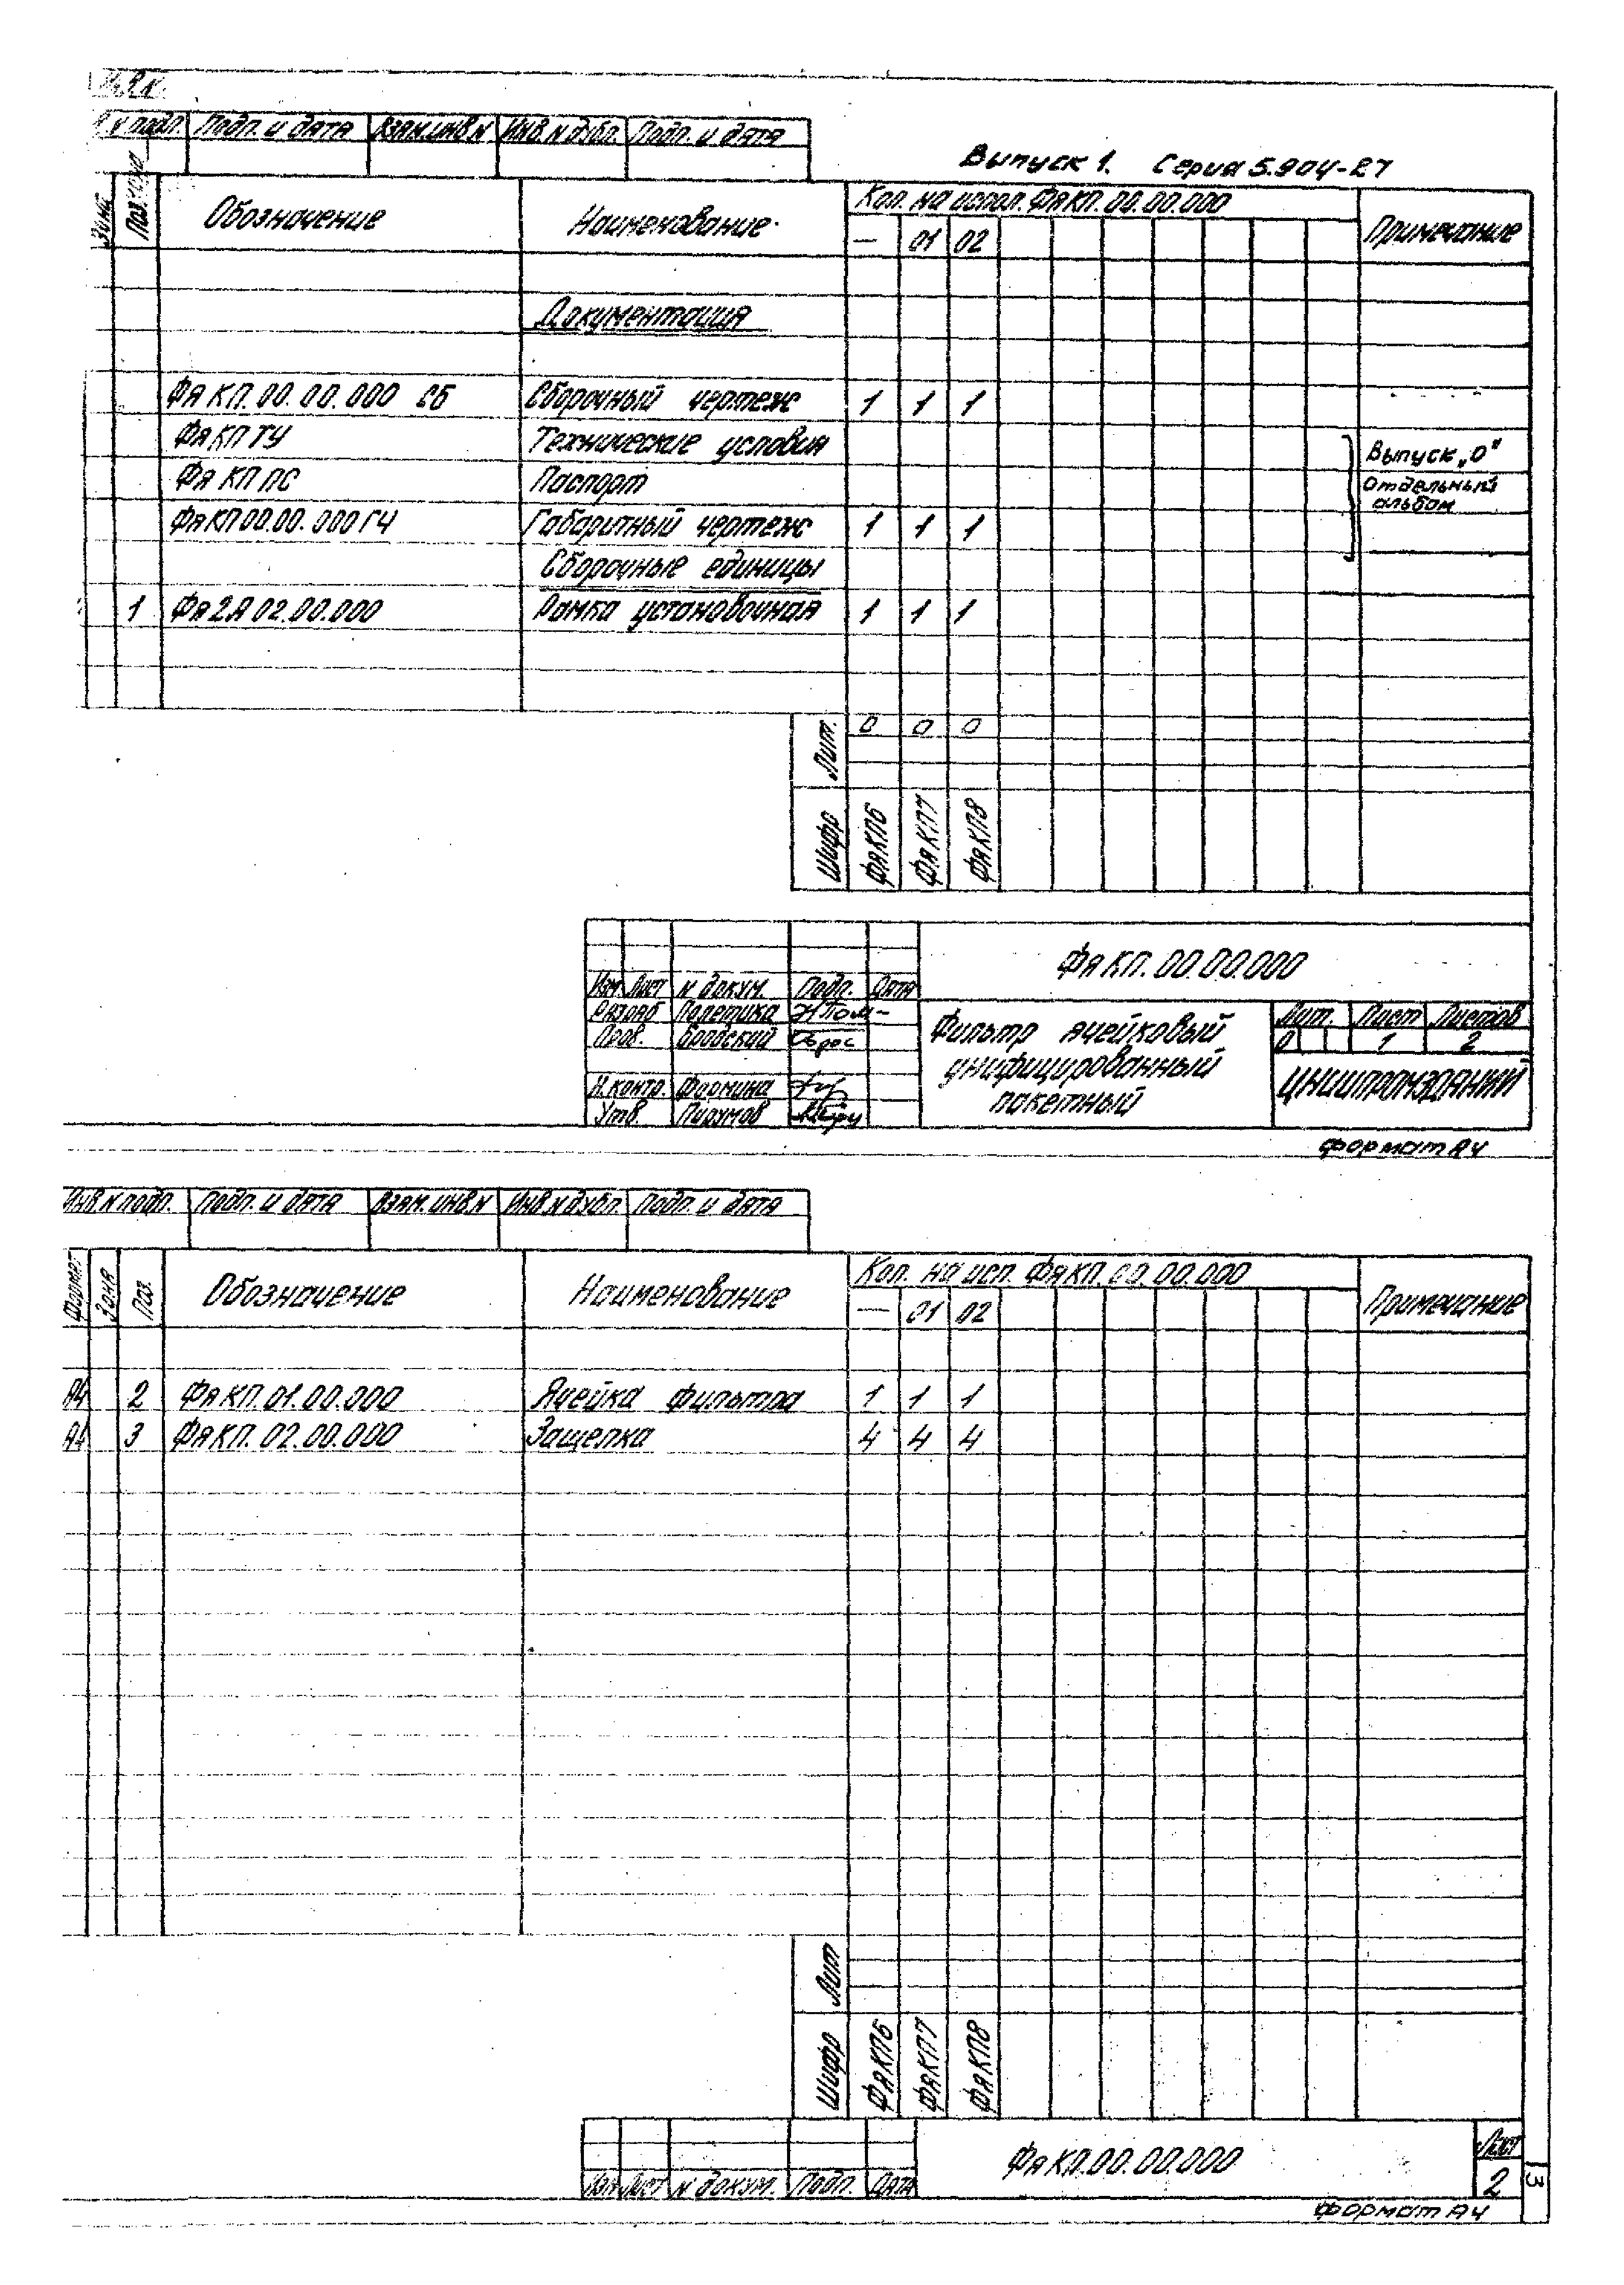 подп. Подп. и дата Взам.инв.N Инв.N дубл. Подп. и дата
Выпуск 1. Серия 5.904-27
Зона Поз. Обозначение Наименование Кол. на испол. ФяКП.00.00.000 Примечание
— 01 02
Документация
ФяКП.00.00.000 СБ Сборочный чертеж 1 1 1
ФяКП ТУ Технические условия
ФяКП ПС Паспорт
Выпуск „0"
отдельный
альбом
ФяКП00.00.000ГЧ Габаритный чертеж 1 1 1
Сборочные единицы
1 Фя2А 02.00.000 Рамка установочная 1 1 1
Лит. 0 0 0
Шифр ФяКП6 ФяКП7 ФяКП8
ФяКП.00.00.000
Изм. Лист N докум. Подп. Дата
Разраб. Полетика
Пров. Бродский
Н.контр. Фомина
Утв. Пирумов
Фильтр ячейковый
унифицированный
пакетный
Лит. Лист Листов
0 1 2
ЦНИИПРОМЗДАНИЙ
формат А4
Инв.N подп. Подп. и дата Взам.инв.N Инв.N дубл Подп. и дата
Формат Зона Поз. Обозначение Наименование Кол. на исп. ФяКП.00.00.000 Примечание
— 01 02
А4 2 ФяКП.01.00.000 Ячейка фильтра 1 1 1
А4 3 ФяКП.02.00.000 Защелка 4 4 4
Лит
Шифр ФяКП6 ФяКП7 ФяКП8
Изм Лист N докум. Подп. Дата
ФяКП.00.00.000
Лист
2
3
формат А4